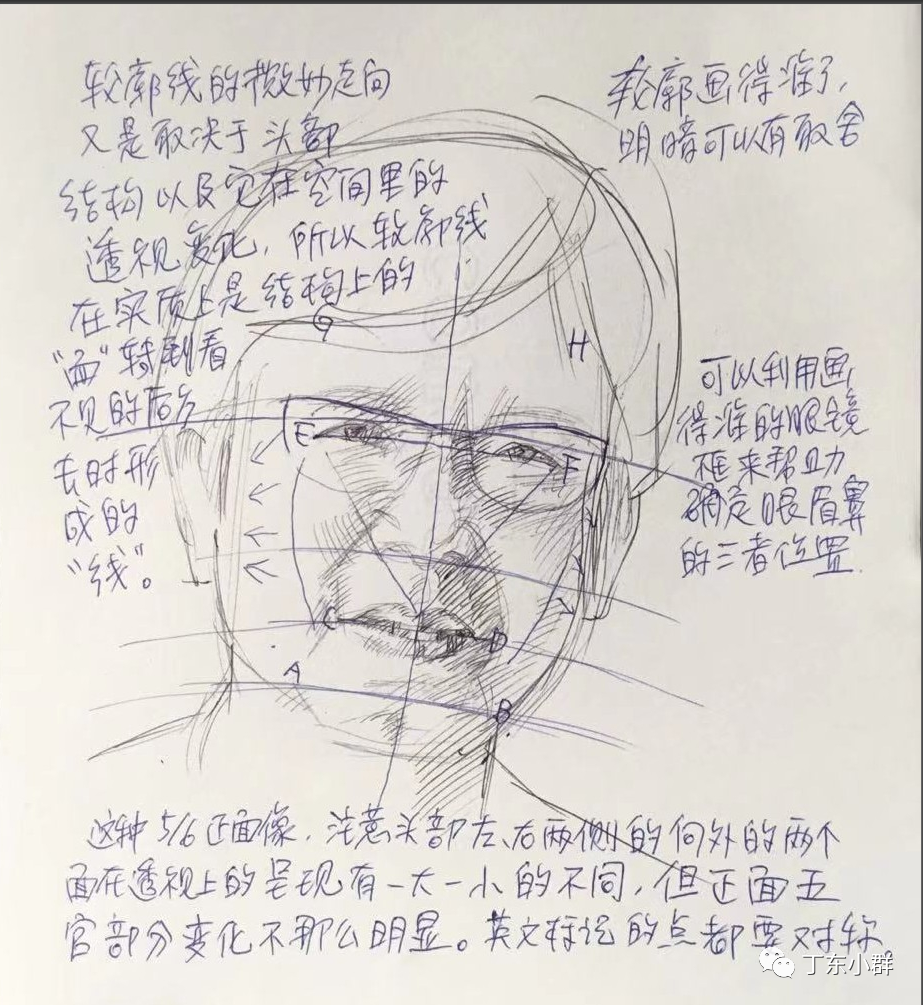 轮廓线的微妙走向
又是取决于头部
结构以及它在空间里的
透视变化，所以轮廓线
在实质上是结构上的
“面”转到看
不见的后方
去时形
成的
“线”。
轮廓画得准了，
明暗可以有取舍
可以利用画
得准的眼镜
框来帮助
确定眼眉鼻
的三者位置
G
H
E
F
C
D
A
B
这种5/6正面像，注意头部左、右两侧的向外的两个
面在透视上的呈现有一大一小的不同，但正面五
官部分变化不那么明显。英文标记的点都要对称。
丁东小群